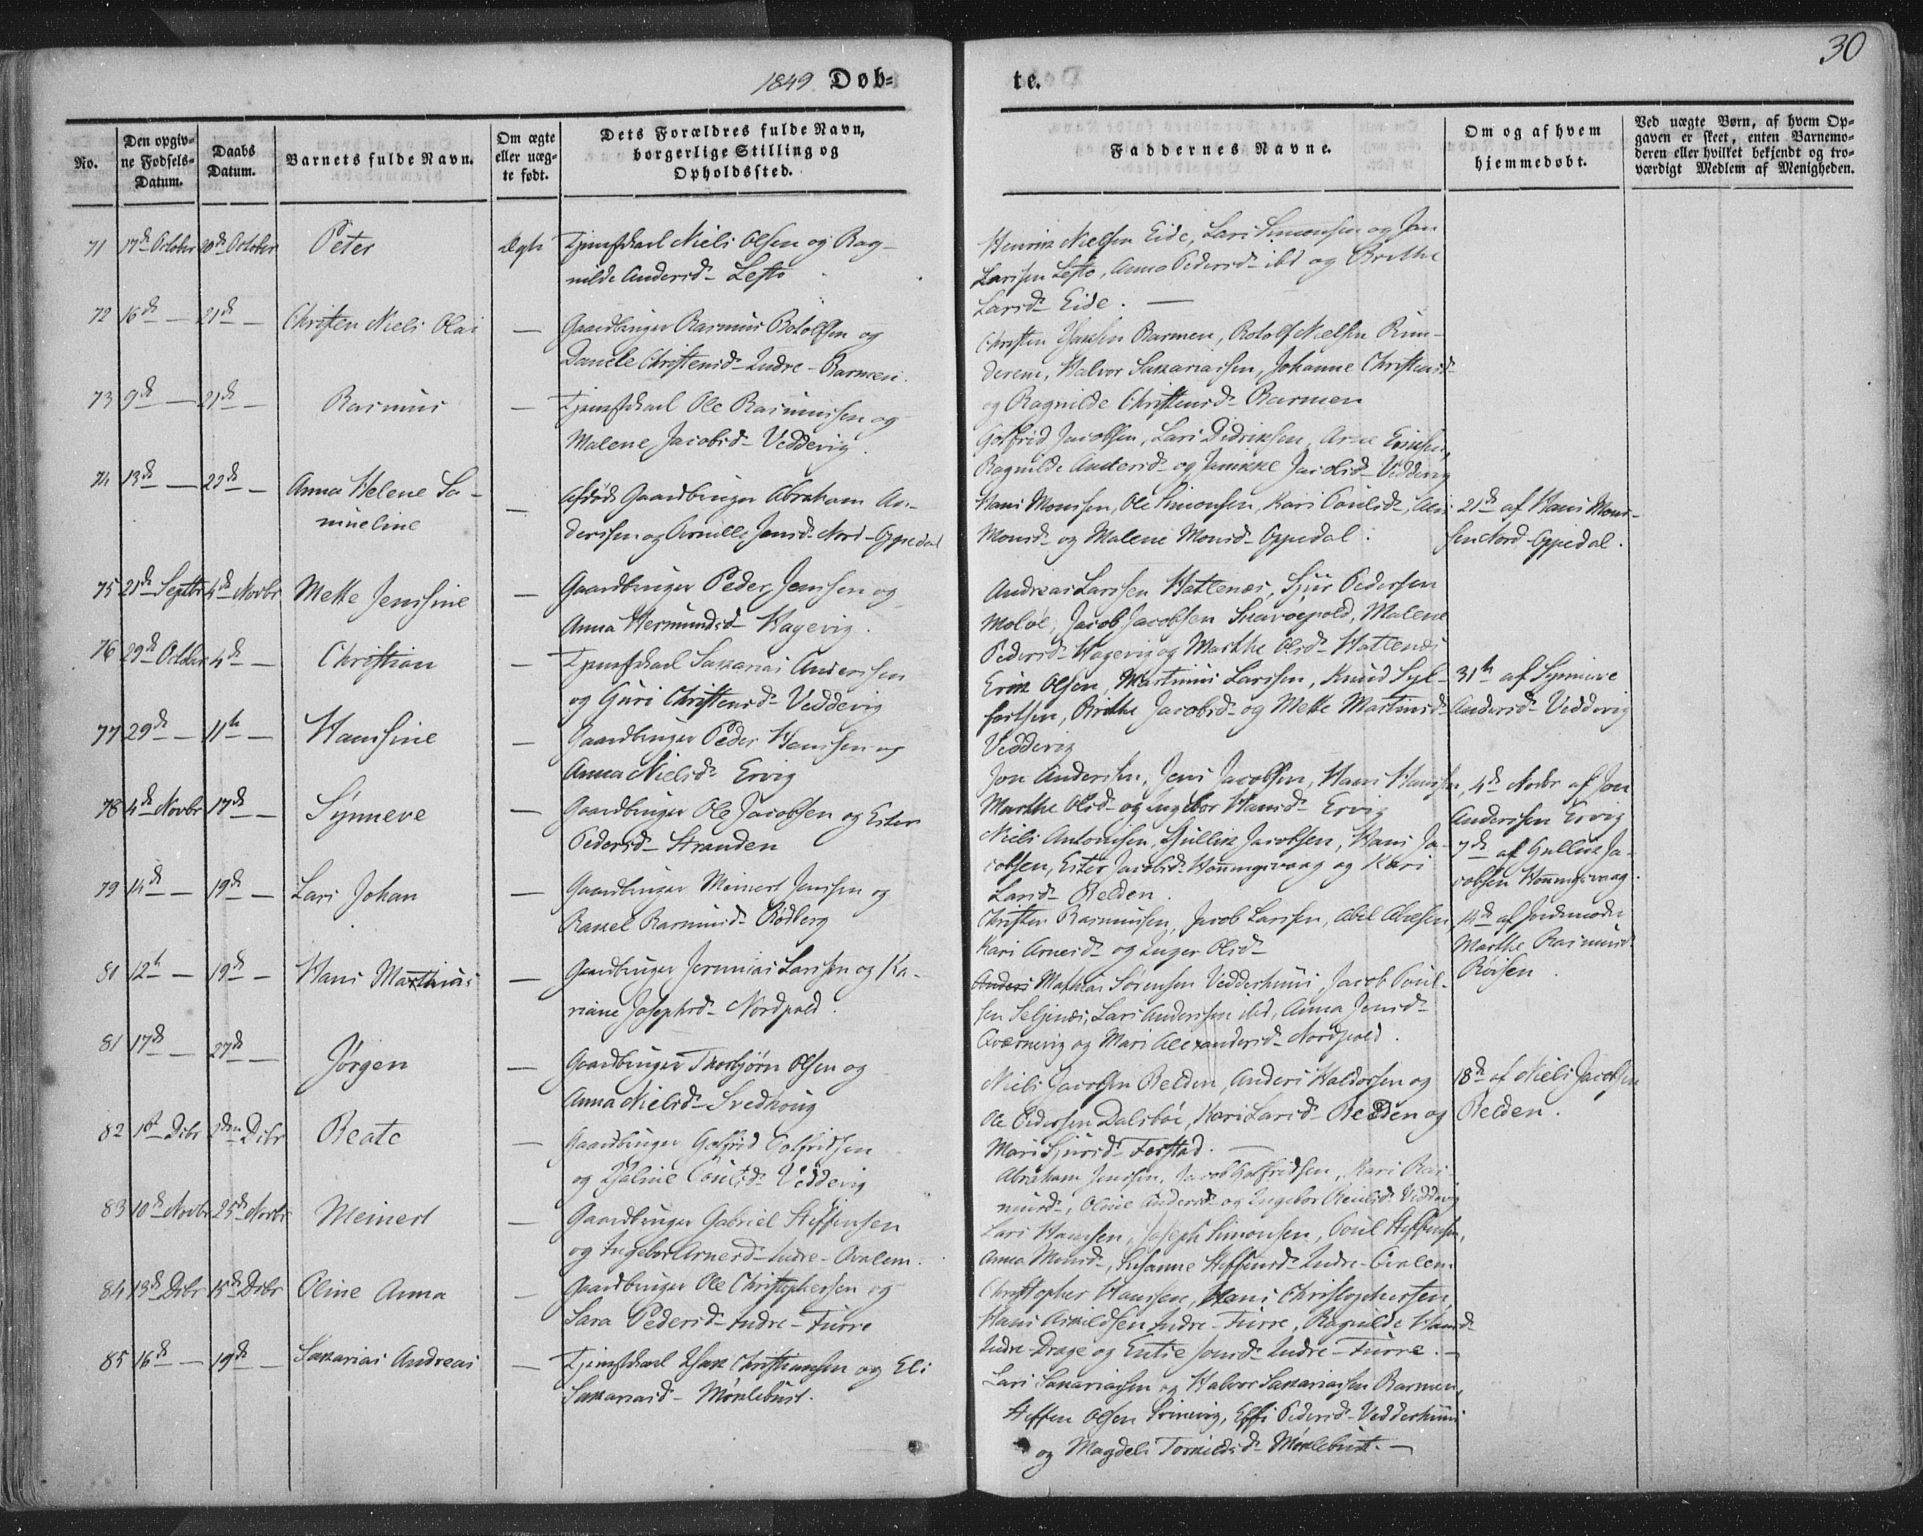 1849 Døb=
te.
30
No.
Den opgiv-
ne Fødsels-
Datum.
Daabs
Datum.
Barnets fulde Navn.
Om ægte
eller uæg-
te født.
Dets Forældres fulde Navn,
borgerlige Stilling og
Opholdssted.
Faddernes Navne.
Om og af hvem
hjemmedøbt.
Ved uægte Børn, af hvem Op-
gaven er skeet, enten Barnemo-
deren eller hvilket bekjendt og tro-
værdigt Medlem af Menigheden.
71 17de October 20de October Peter Ægte Tjenestkarl Niels Olsen og Rag-
nilde Andersd- Lefto
Henrik Nielsen Eide, Lars Simonsen og Jan
Larsen Lefto, Anna Pedersd- ibd og Brithe
Larsd- Eide. —
72 16de — 21de — Christen Niels Olai — Gaardbruger Rasmus Botolfsen og
Danele Christensd- Indre-Barmen.
Christen Barmen, Botolf Nielsen Run-
derem, Halvor Sakariassen, Johanne Christensd-
og Ragnilde Christensd- Barmen
73 9de — 21de — Rasmus — Tjenestkarl Ole Rasmussen og
Malene Jacobsd- Veddevig.
Golfrid Jacobsen, Lars Didriksen, Arne Eriksen,
Ragnilde Andersd- og Jacobsd- Veddevig
74 13de — 22de — Anna Helene Sa-
mueline — Afdøde Gaardbruger Abraham An-
derssen og Jensd- Nord-Oppedal
Hans Monssen, Ole Simonsen, Kari Poulsd-,
Monsd- og Malene Monsd- Oppedal.
21de af Hans Mons-
sen Nord-Oppedal.
75 21de Septbr 4de Novbr Mette Jensine — Gaardbruger Peder Jenssen og
Anna Hermundsd- Hagevig.
Andreas Larssen Hatlenes, Sjur Pedersen
Moløe, Jacob Jacobsen, Malene
Pedersd- Hagevig og Marthe Olsd- Hatlenes
76 29de October 4de — Christian — Tjenestkarl Sakarias Anderssen
og Guri Christensd- Veddevig
Erik Olsen, Martinus Larssen, Knud Syl-
festsen, Brithe Jacobsd- og Mette Martinsd-
Veddevig
31te af Synneve
Andersd- Veddevig
77 29de — 11te — Hansine — Gaardbruger Peder Hanssen og
Anna Nielsd- Ervig
Jon Anderssen, Jens Jacobsen, Hans Hanssen,
Marthe Olsd- og Ingebor Hansd- Ervig
4de Novbr af Jon
Anderssen Ervig
78 4de Novbr 17de — Synneve — Gaardbruger Ole Jacobsen og Ester
Pedersd- Stranden
Niels Antonsen, Gullik Jacobsen, Hans Ja-
cobsen, Ester Jacobsd- Honningsvaag og Kari
Larsd- Relden.
7de af Gullik Ja-
cobsen Honningsvaag.
79 14de — 19de — Lars Johan — Gaardbruger Meinert Jenssen og
Rakel Rasmusd- Rødberg
Christen Rasmussen, Jacob Larssen, Abel Abelsen,
Kari Arnesd- og Inger Olsd-
14de af Jordemoder
Marthe Rasmusd-
Røisen.
81 12te — 19de — Hans Mathias — Gaardbruger Jeremias Larssen og Ka-
riane Josephsd- Nordpold.
Anders Mathias Sørensen Vedderhuus, Jacob Poul-
sen Seljenes, Lars Anderssen ibd, Anna Jensd-
Qværnevig og Mari Alexandersd- Nordpold.
81 17de — 27de — Jørgen — Gaardbruger Thorbjørn Olsen og
Anna Nielsd- Sredhoug
Niels Jacobsen Relden, Anders Haldorsen og
Ole Pedersen Dalsbøe, Kari Larsd- Relden og
Mari Sjursd- Forstad. —
18de af Niels Jacobsen
Relden.
82 1ste Dcbr 2den Dcbr Beate — Gaardbruger Golfrid Golfridsen
og Paline Poulsd- Veddevig
Abraham Jenssen, Jacob Golfridsen, Kari Ras-
musd-, Oline Andersd- og Ingebor Poulsd- Veddevig
83 10de Novbr 25de Novbr Meinert — Gaardbruger Gabriel Steffensen
og Ingebor Arnesd- Indre-Qvalem.
Lars Hanssen, Joseph Simonsen, Poul Steffensen,
Anna Monsd-, Susanne Steffensd- Indre-Qvalem
84 13de Dcbr 15de Dcbr Oline Anna — Gaardbruger Ole Christophersen og
Sara Pedersd- Indre-Furre
Christopher Hanssen, Hans Christophersen,
Hans Askildsen Indre-Furre, Ragnilde Hansd-
Indre-Drage og Entie Jonsd- Indre-Furre. —
85 16de — 19de — Sakarias Andreas — Tjenestkarl Isak Christiansen og Eli
Sakariasd- Møklebust.
Lars Sakariassen og Halvor Sakariassen Barmen,
Steffen Olsen, Pedersd- Vedderhuus
og Magdeli Torkildsd- Møklebust. —